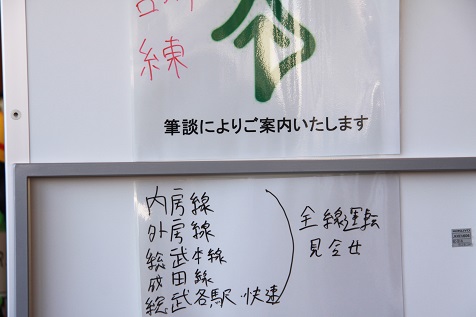 練
筆談によりご案内いたします
内房線
外房線
総武本線
成田線
総武各駅・快速
全線運転
見合せ